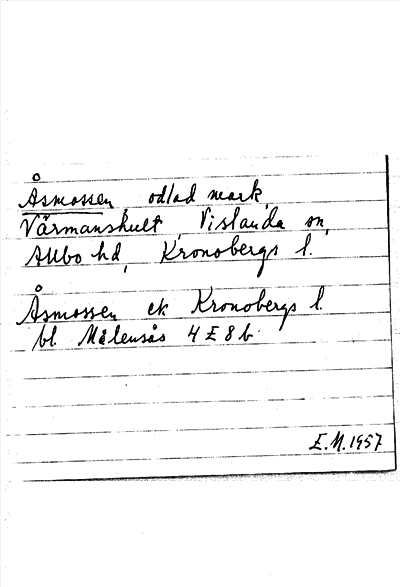 Åsmossen, odlad mark,
Värmanshult, Vislanda sn,
Allbo hd, Kronobergs l.
Åsmossen ek Kronobergs l.
bl Målensås 4 E 8 b
E.M. 1957